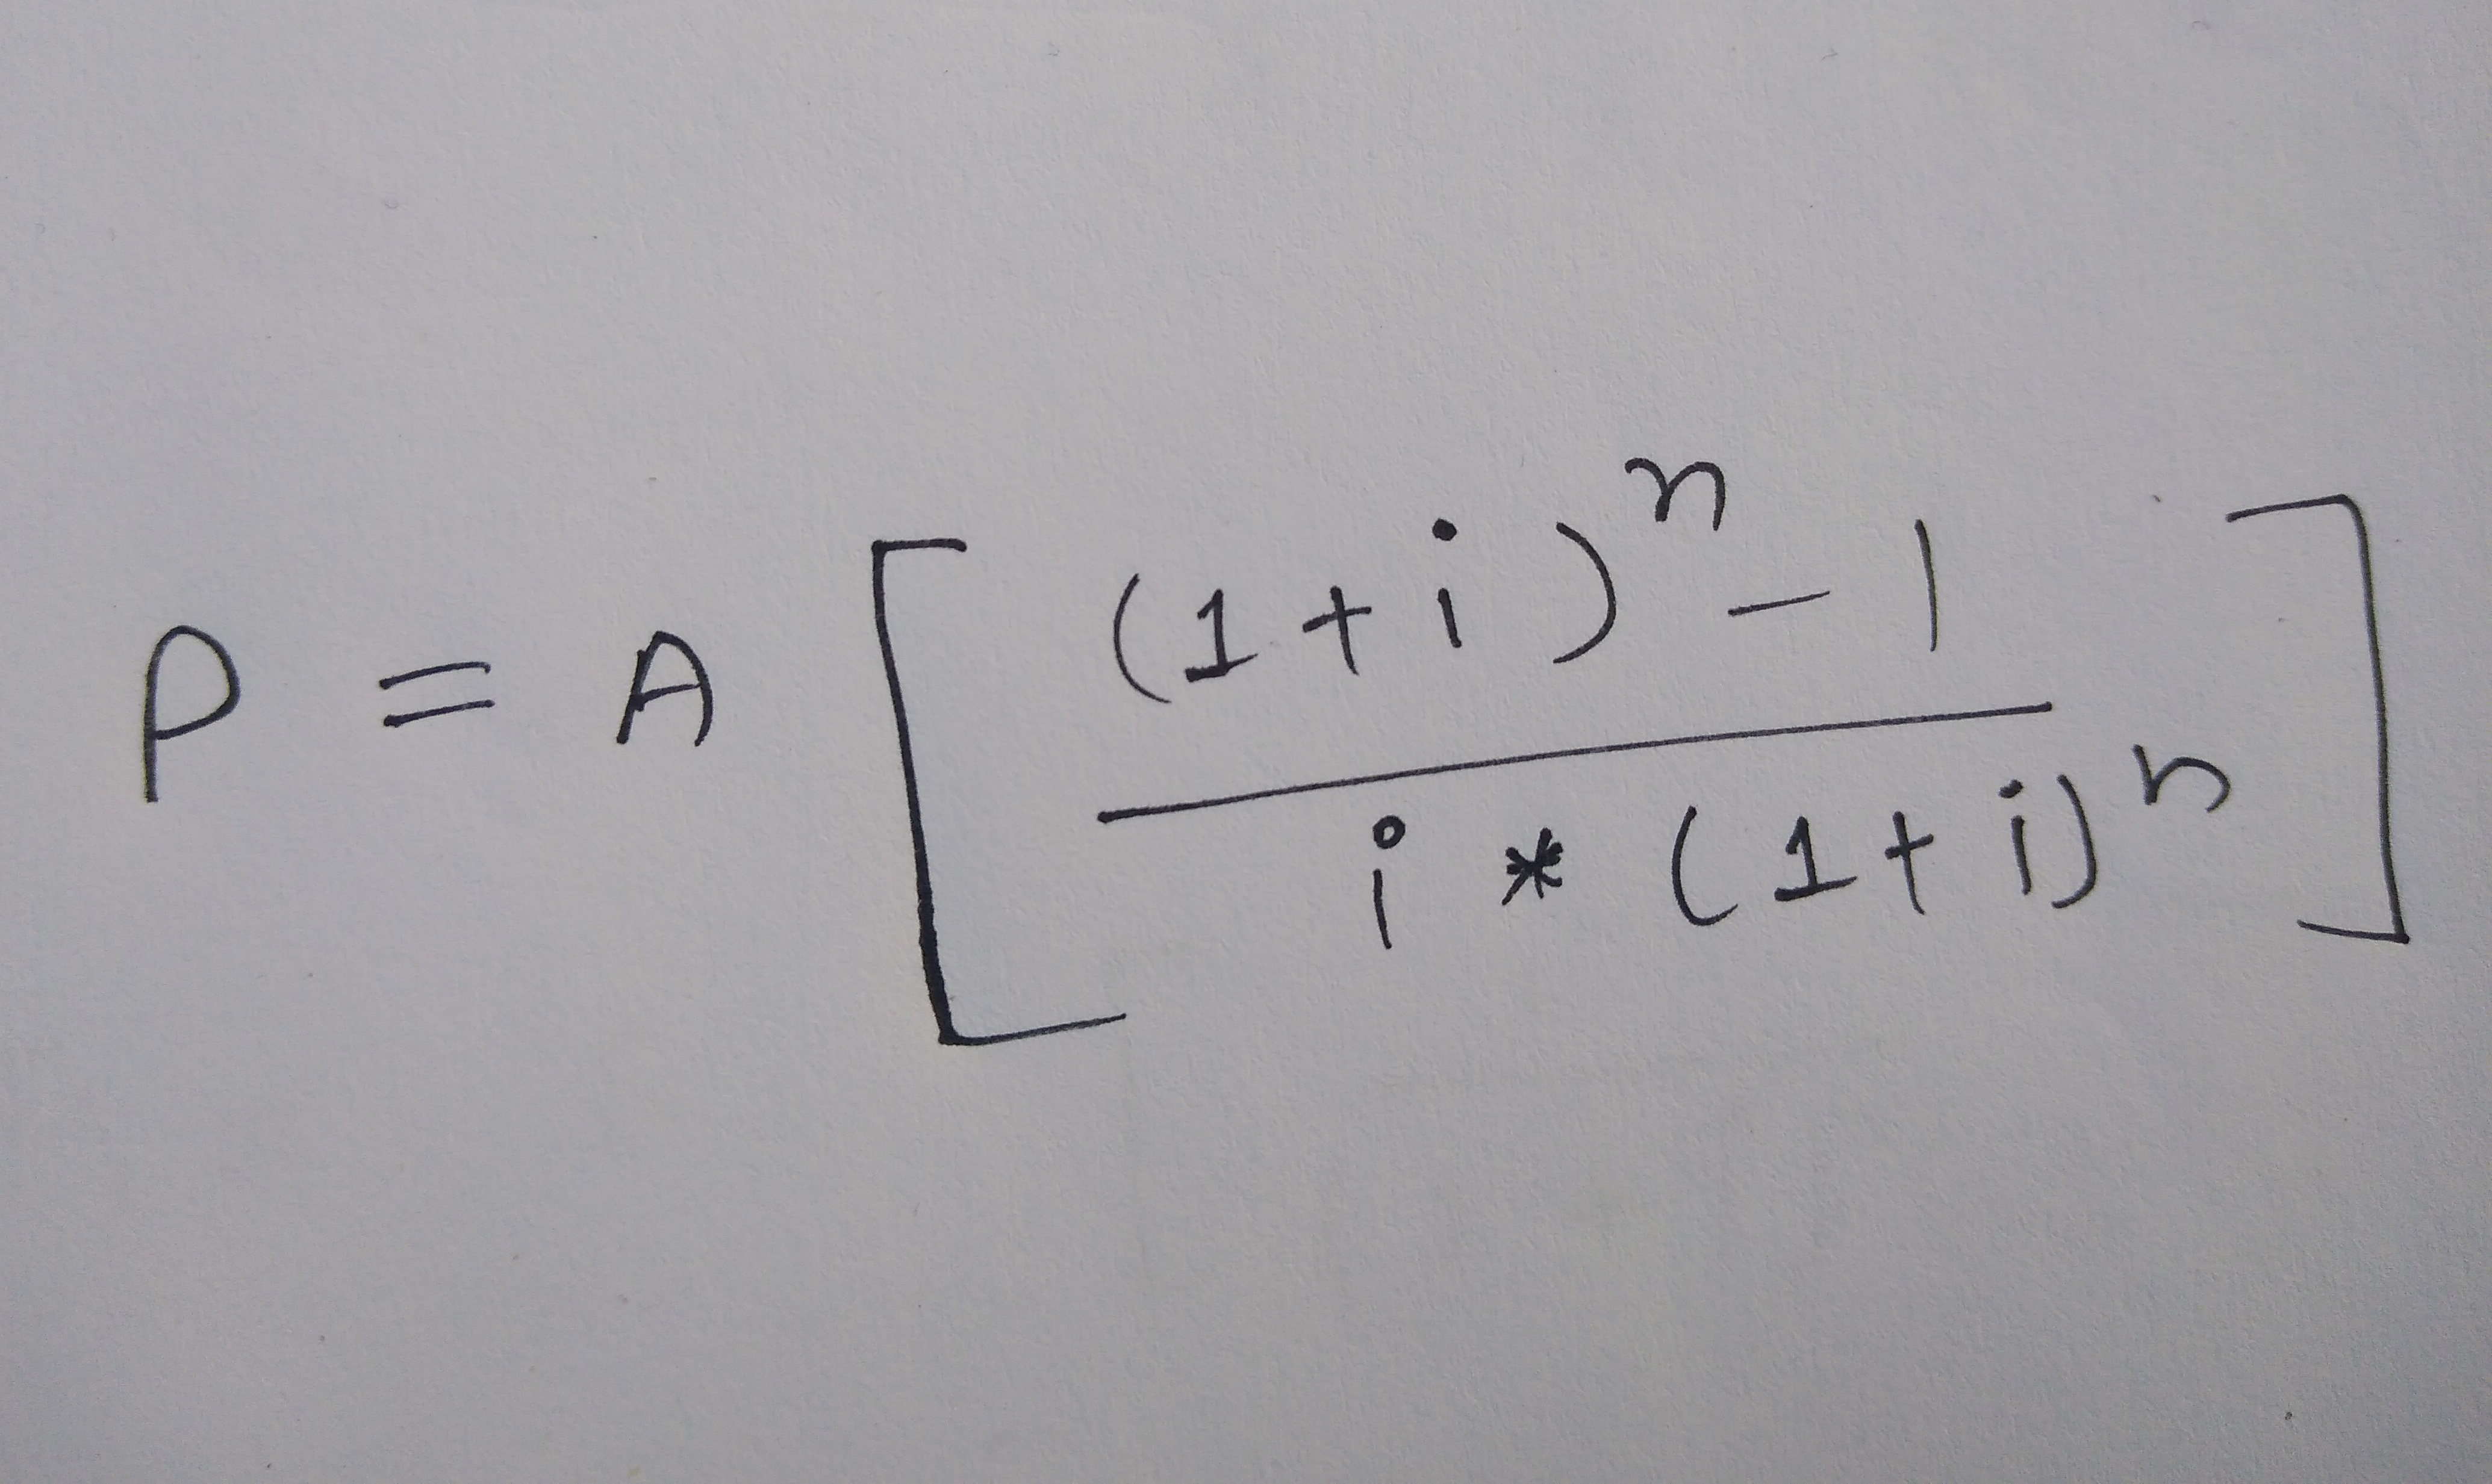 P = A [ \frac{(1+i)^n - 1}{i * (1+i)^n} ]